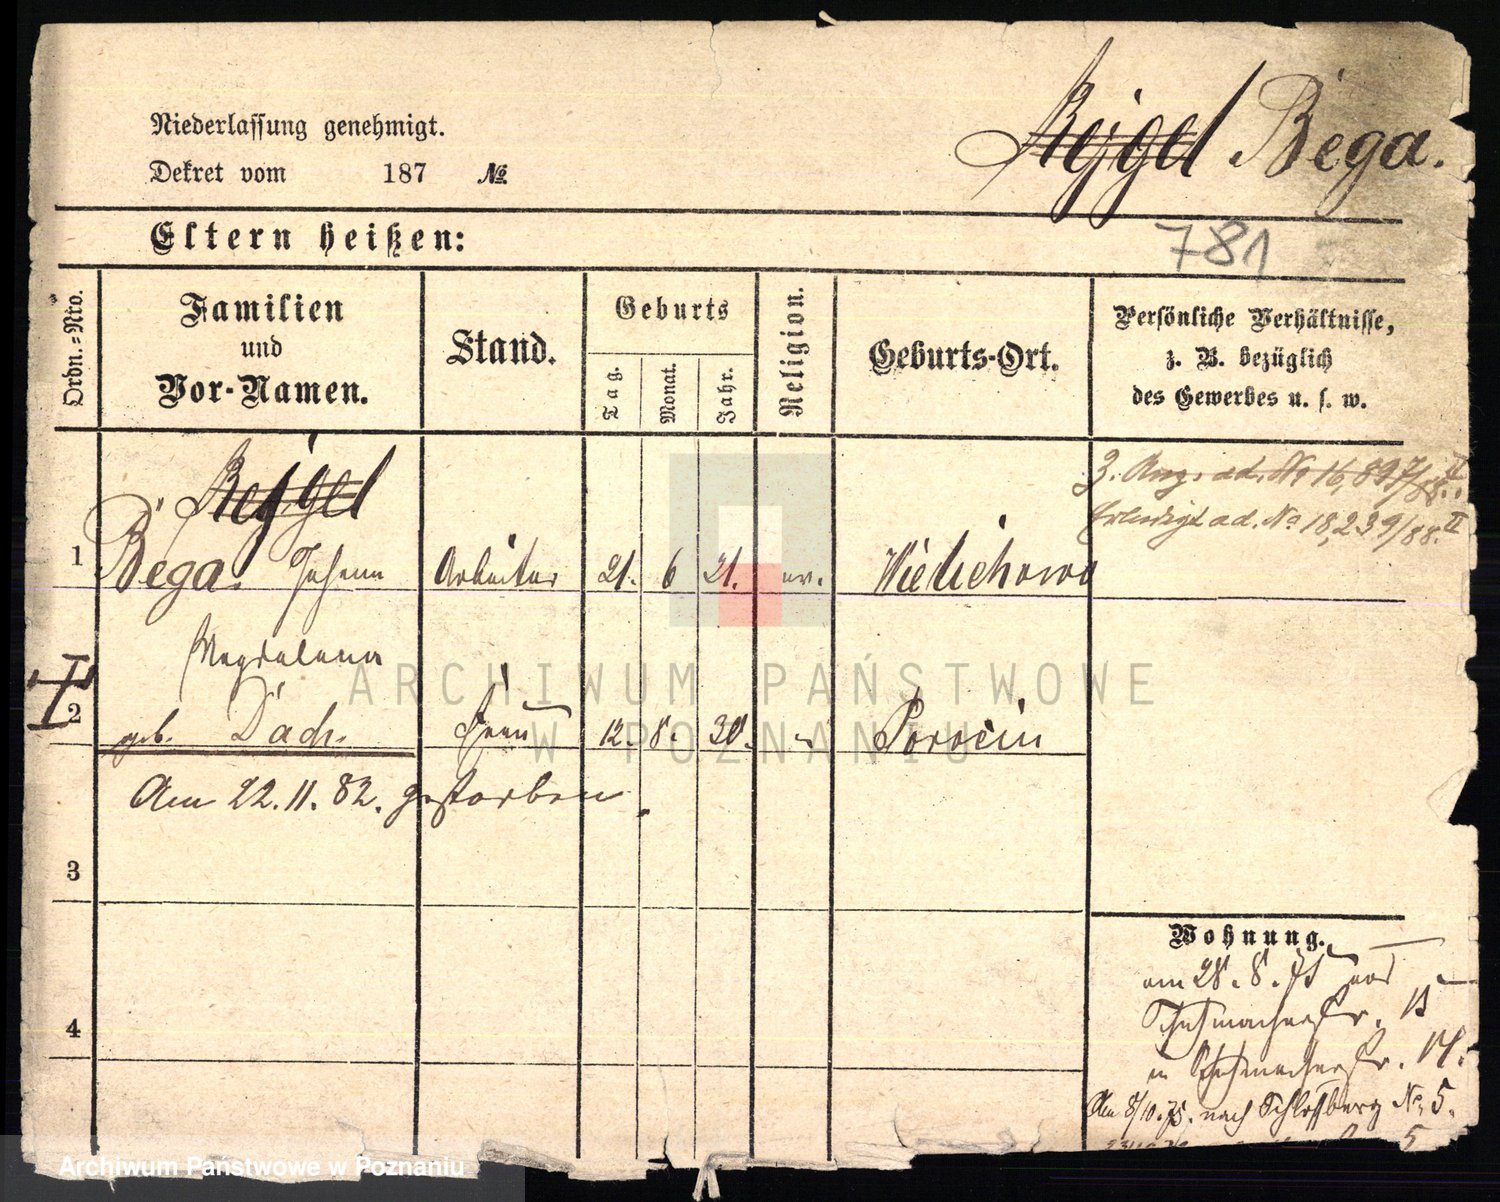 Niederlassung genehmigt.
Dekret vom 187 №
Bega.
Eltern heißen:
781
Ordn.-Nro.
Familien
und
Vor-Namen.
Stand.
Geburts
Tag.
Monat.
Jahr.
Religion.
Geburts-Ort.
Persönliche Verhältnisse,
z. B. bezüglich
des Gewerbes u. s. w.
3. Anz. ad. No 16,897/88. II
Erledigt ad. No 18,239/88. II
1 Bega. Johann Arbeiter 21. 6 21. ev. Wielichowo
Magdalena
2 geb. Dach. Frau 12. 8. 30. Porocin
Am 22.11.82. gestorben.
3
4
Wohnung.
am 28.8.75 aus
Schuhmacherstr. 15
in Schuhmacherstr. 14.
Am 8/10.75. nach Schloßberg No. 5.
5
ARCHIWUM PAŃSTWOWE
W POZNANIU
Archiwum Państwowe w Poznaniu